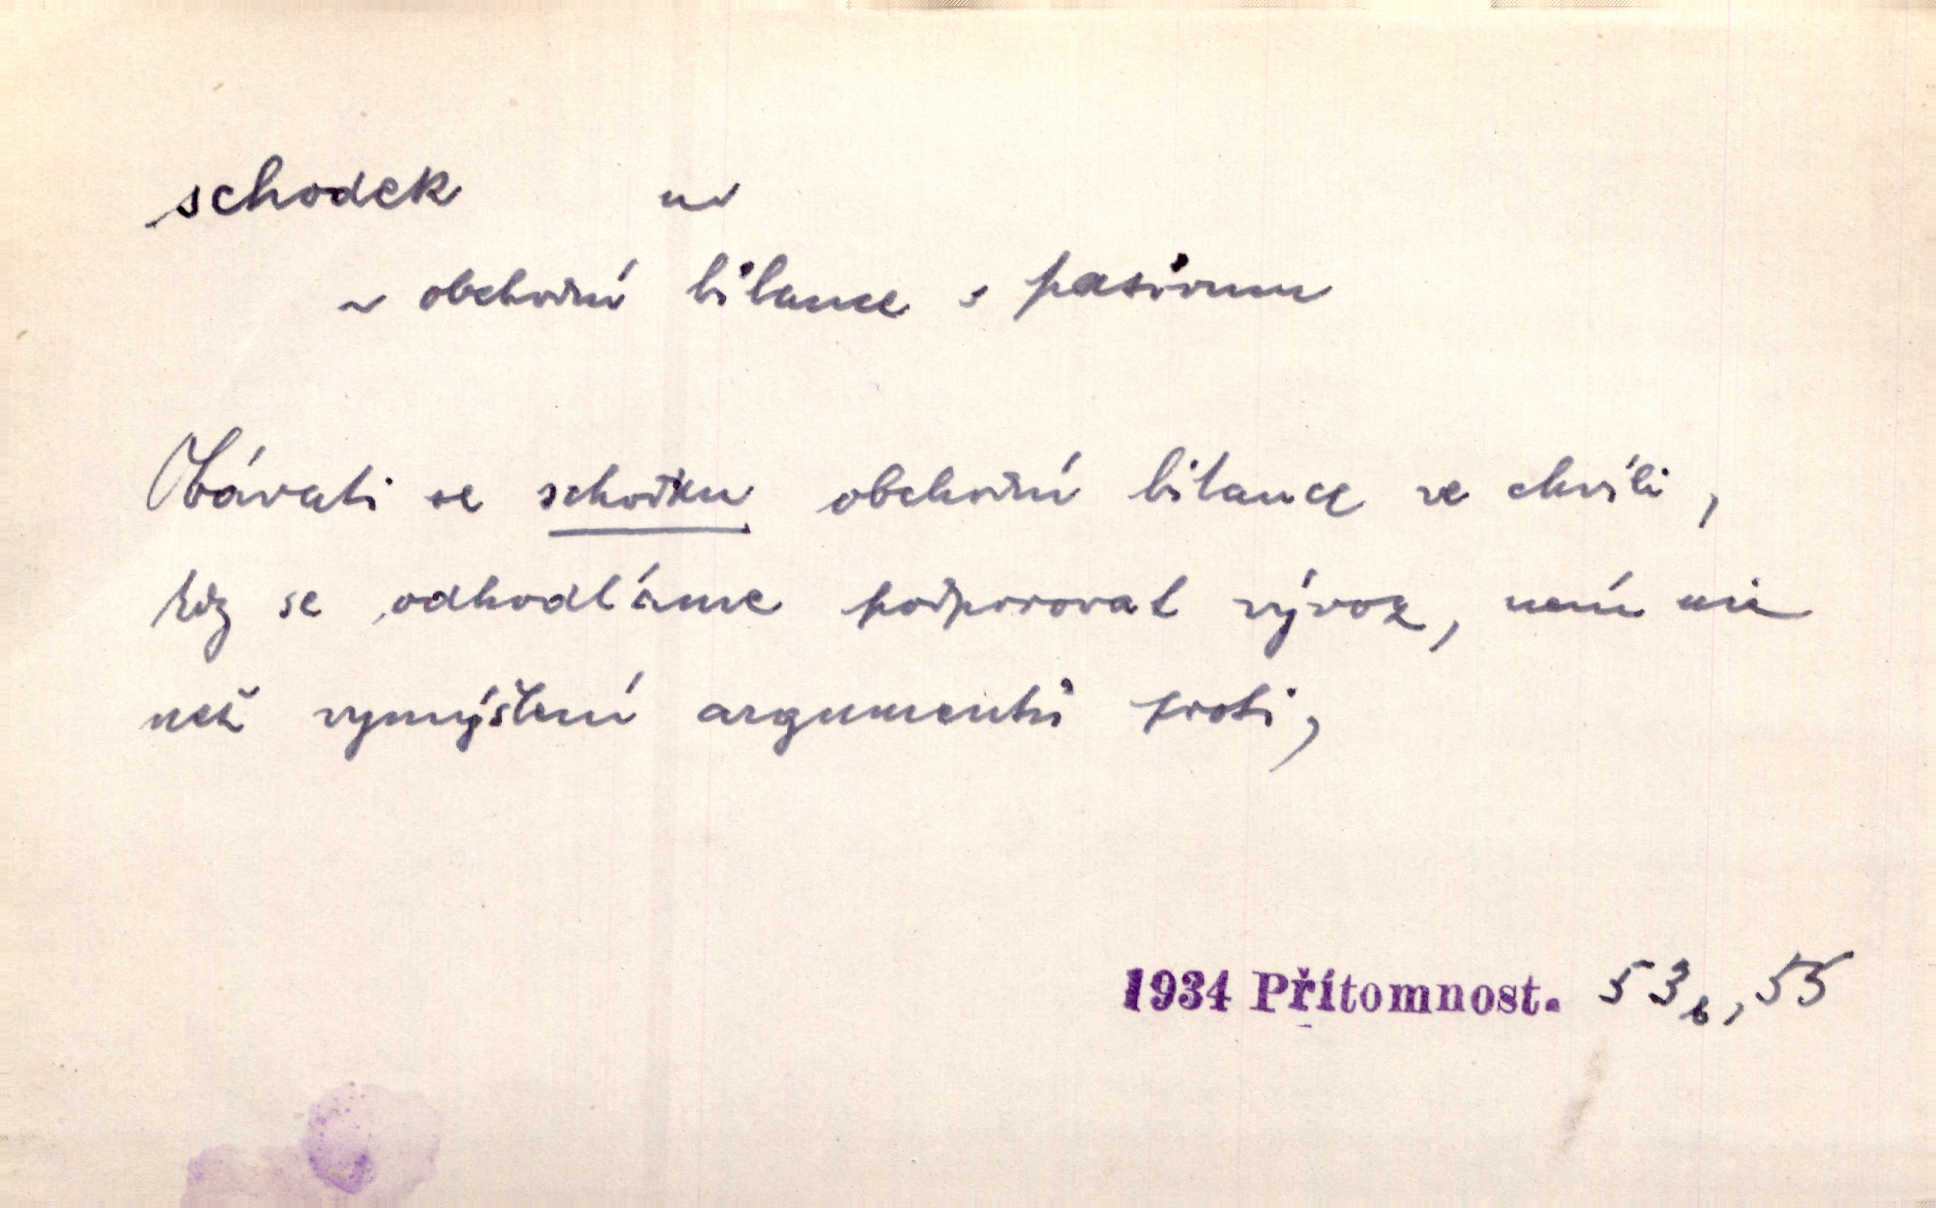 schodek
~ obchodní bilance s pasivum
Obávati se schodku obchodní bilance ve chvíli,
kdy se odhodláme podporovat vývoz, není nic
než vymýšlení argumentů proti,
1934 Přítomnost. 53b, 55